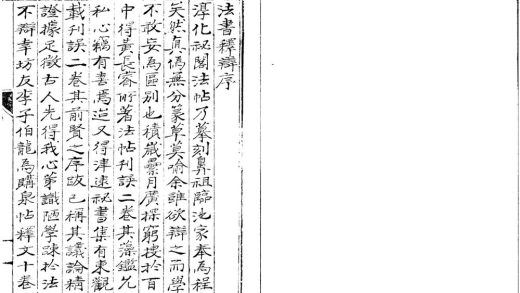 法書釋辯序
淳化祕閣法帖乃摹刻鼻祖臨池家奉為程
矣然真偽無分篆草莫喻余雖欲辯之而學
不敢妄為區別也積歲累月廣探窮搜於百
中得黃長睿所著法帖刊誤二卷其藻鑑允
私心竊有喜焉迨又得津逮祕書集有東觀
載刊誤二卷其前賢之序跋已稱其議論精
證據足徵古人先得我心第識陋學踈於法
不辯幸坊友李子伯龍為購泉帖釋文十卷